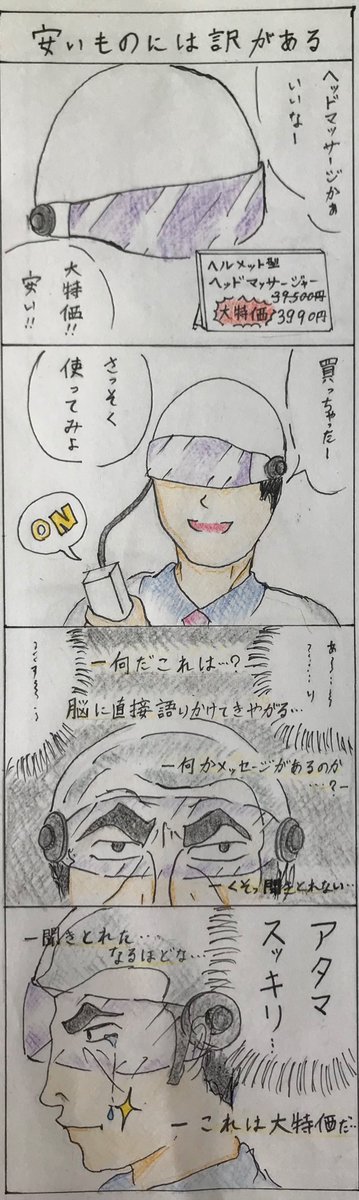 安いものには訳がある
ヘッドマッサージかぁ
いいなー
ヘルメット型
ヘッドマッサージャー
39,500円
大特価
3990円
大特価!!
安い!!
買っちゃったー
さっそく
使ってみよ
ON
ー何だこれは…?ー
脳に直接語りかけてきやがる…
ー何かメッセージがあるのか
…?ー
ーくそっ聞きとれない…
アタマ
スッキリ…
ー聞きとれた…
なるほどな…
ーこれは大特価だ…